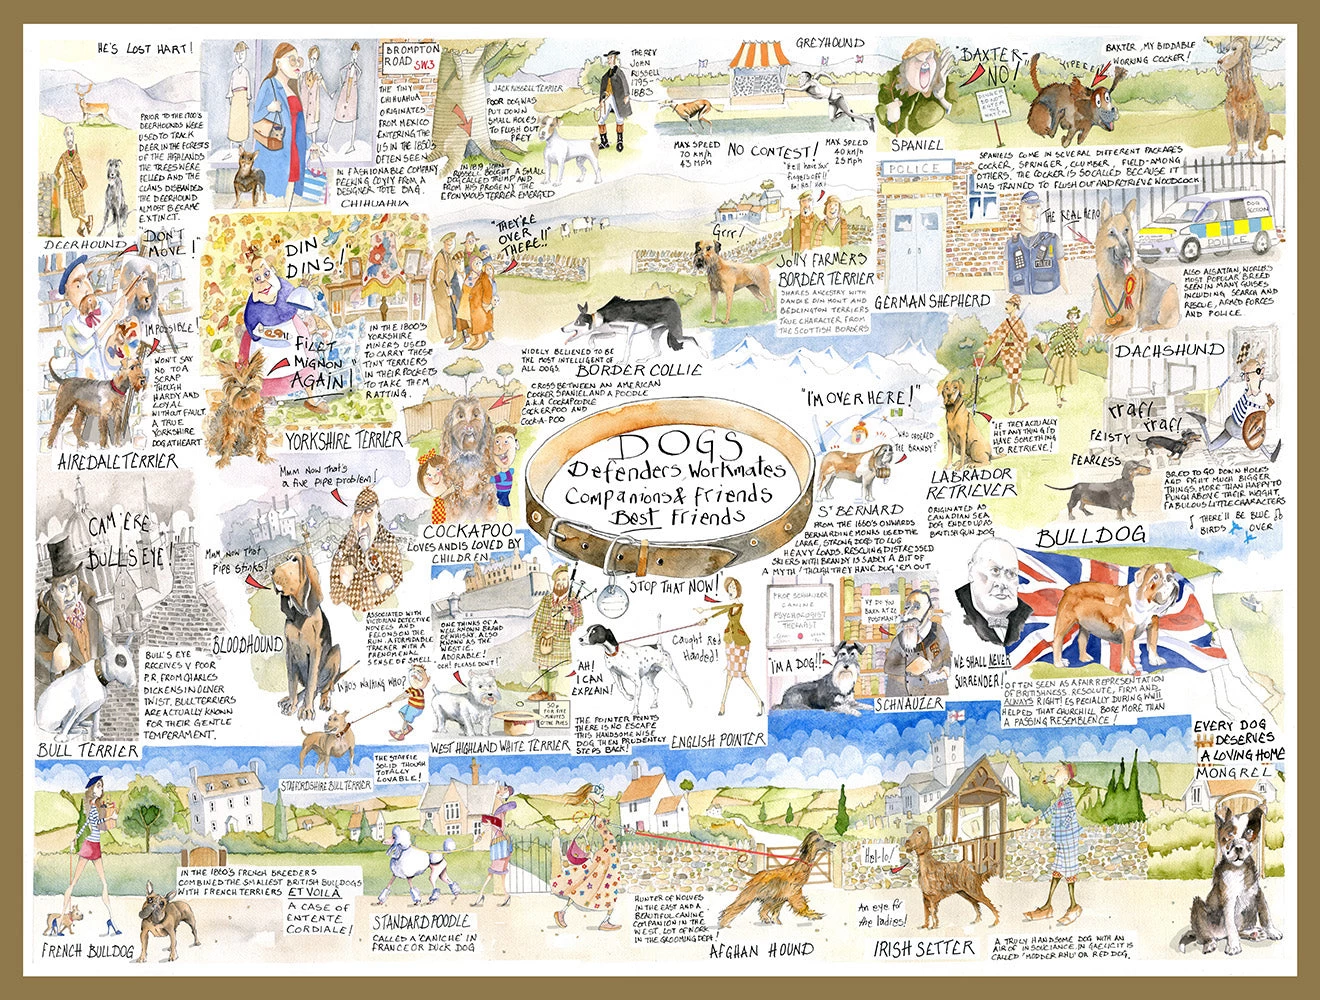 HE'S LOST HART!
PRIOR TO THE 1700'S
DEERHOUNDS WERE
USED TO TRACK
DEER IN THE FORESTS
OF THE HIGHLANDS
THE TREES WERE
FELLED AND THE
CLANS DISBANDED
THE DEERHOUND
ALMOST BECAME
EXTINCT.
DEERHOUND
BROMPTON
ROAD SW3
THE TINY
CHIHUAHUA
ORIGINATES
FROM MEXICO
ENTERING THE
US IN THE 1850s
OFTEN SEEN
IN FASHIONABLE COMPANY
PEEKING COYLY FROM A
DESIGNER TOTE BAG.
CHIHUAHUA
JACK RUSSELL TERRIER
POOR DOG WAS
PUT DOWN
SMALL HOLES
TO FLUSH OUT
PREY
THE REV
JOHN
RUSSELL
1795-
1883
IN 1819 JOHN
RUSSELL BOUGHT A SMALL
DOG CALLED TRUMP AND
FROM HIS PROGENY THE
EPONYMOUS TERRIER EMERGED
GREYHOUND
MAX SPEED
70 km/h
43 MPH
NO CONTEST!
MAX SPEED
40 km/h
25 mph
"BAXTER-
NO!"
YIPEE!
BAXTER, MY BIDDABLE
WORKING COCKER!
SPANIEL
SPANIELS COME IN SEVERAL DIFFERENT PACKAGES
COCKER, SPRINGER, CLUMBER, FIELD-AMONG
OTHERS. THE COCKER IS SO CALLED BECAUSE IT
WAS TRAINED TO FLUSH OUT AND RETRIEVE WOODCOCK
"DON'T
MOVE!"
'IMPOSSIBLE!
WON'T SAY
NO TO A
SCRAP
THOUGH
HARDY AND
LOYAL
WITHOUT FAULT.
A TRUE
YORKSHIRE
DOG AT HEART
AIREDALE TERRIER
"DIN
DINS!"
"FILET
MIGNON
AGAIN!"
IN THE 1800'S
YORKSHIRE
MINERS USED
TO CARRY THESE
TINY TERRIERS
IN THEIR POCKETS
TO TAKE THEM
RATTING.
YORKSHIRE TERRIER
"THEY'RE
OVER
THERE!!"
WIDELY BELIEVED TO BE
THE MOST INTELLIGENT OF
ALL DOGS.
BORDER COLLIE
Grrr!
JOLLY FARMERS
BORDER TERRIER
SHARES ANCESTRY WITH
DANDIE DINMONT AND
BEDLINGTON TERRIERS
TRUE CHARACTER FROM
THE SCOTTISH BORDERS
POLICE
THE REAL HERO
DOG
SECTION
POLICE
GERMAN SHEPHERD
ALSO ALSATIAN, WORLD'S
MOST POPULAR BREED
SEEN IN MANY GUISES
INCLUDING SEARCH AND
RESCUE, ARMED FORCES
AND POLICE.
CROSS BETWEEN AN AMERICAN
COCKER SPANIEL AND A POODLE
A.K.A COCKAPOODLE
COCKERPOO AND
COCK-A-POO
COCKAPOO
LOVES AND IS LOVED BY
CHILDREN
DOGS
Defenders, Workmates
Companions & Friends
Best Friends
"I'M OVER HERE!"
WHO ORDERED
THE BRANDY?
ST BERNARD
FROM THE 1660'S ONWARDS
BERNARDINE MONKS USED THE
LARGE, STRONG DOG TO LUG
HEAVY LOADS. RESCUING DISTRESSED
SKIERS WITH BRANDY IS SADLY A BIT OF
A MYTH! THOUGH THEY HAVE DUG 'EM OUT
"IF THEY ACTUALLY
HIT ANYTHING I'D
HAVE SOMETHING
TO RETRIEVE!
LABRADOR
RETRIEVER
ORIGINATED AS
CANADIAN SEA
DOG ENDED UP AS
BRITISH GUN DOG
DACHSHUND
rraf!
rraf!
FEISTY
FEARLESS
BRED TO GO DOWN HOLES
AND FIGHT MUCH BIGGER
THINGS, MORE THAN HAPPY TO
PUNCH ABOVE THEIR WEIGHT,
FABULOUS LITTLE CHARACTERS
THERE'LL BE BLUE
BIRDS OVER
CAM 'ERE
BULLS EYE!"
BULL'S EYE
RECEIVES V POOR
P.R. FROM CHARLES
DICKENS IN OLIVER
TWIST, BULL TERRIERS
ARE ACTUALLY KNOWN
FOR THEIR GENTLE
TEMPERAMENT.
BULL TERRIER
Mmm Now that's
a five pipe problem!
Mmm now that
Pipe stinks!
BLOODHOUND
ASSOCIATED WITH
VICTORIAN DETECTIVE
NOVELS AND
FELONS ON THE
RUN. A FORMIDABLE
TRACKER WITH A
PHENOMENAL
SENSE OF SMELL.
WHO'S WALKING WHO?
STAFFORDSHIRE BULL TERRIER
THE STAFFIE
SOLID THOUGH
TOTALLY
LOVABLE!
ONE THINKS OF A
WELL KNOWN BRAND
OF WHISKY. ALSO
KNOWN AS THE
WESTIE.
ADORABLE!
OCH! PLEASE DON'T!
50p
FOR FIVE
MINUTES
WEST HIGHLAND WHITE TERRIER
STOP THAT NOW!
Caught Red
Handed!
AH!
I CAN
EXPLAIN!
THE POINTER POINTS
THERE IS NO ESCAPE
THIS HANDSOME WISE
DOG THEN PRUDENTLY
STEPS BACK!
ENGLISH POINTER
PROF SCHNAUZER
CANINE
PSYCHOLOGIST
THERAPIST
VY DO YOU
BARK AT ZE
POSTMAN?
"I'M A DOG!!"
SCHNAUZER
BULLDOG
WE SHALL NEVER
SURRENDER!
OFTEN SEEN AS A FAIR REPRESENTATION
OF BRITISHNESS. RESOLUTE, FIRM AND
ALWAYS RIGHT! ESPECIALLY DURING WWII
HELPED THAT CHURCHILL BORE MORE THAN
A PASSING RESEMBLENCE!
EVERY DOG
DESERVES
A LOVING HOME
MONGREL
IN THE 1860'S FRENCH BREEDERS
COMBINED THE SMALLEST BRITISH BULLDOGS
WITH FRENCH TERRIERS ET VOILÁ
A CASE OF
ENTENTE
CORDIALE!
FRENCH BULLDOG
STANDARD POODLE
CALLED A 'CANICHE' IN
FRANCE OR DUCK DOG
HUNTER OF WOLVES
IN THE EAST AND A
BEAUTIFUL CANINE
COMPANION IN THE
WEST. LOT OF WORK
IN THE GROOMING DEPT!
AFGHAN HOUND
Hel-lo!
An eye for
the ladies!
IRISH SETTER
A TRULY HANDSOME DOG WITH AN
AIR OF INSOUCIANCE. IN GAELIC IT IS
CALLED 'MODDER RHU' OR RED DOG.